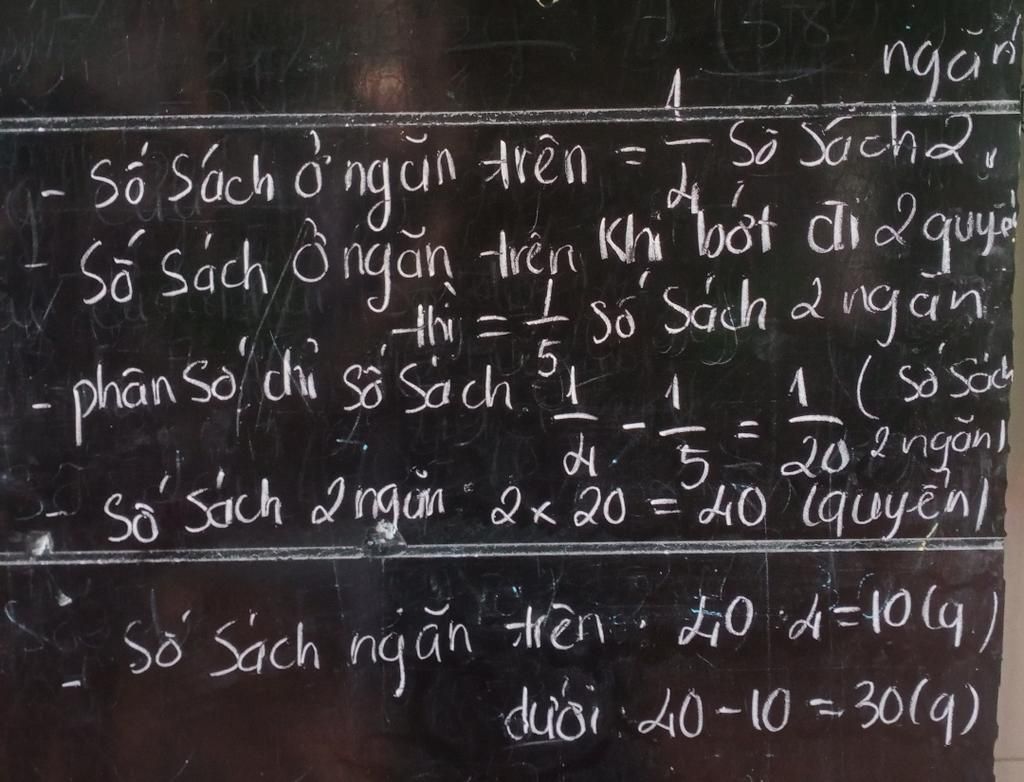 ngăn
- Số sách ở ngăn trên = 1/4 Số sách 2
- Số sách ở ngăn trên khi bớt đi 2 quyể
thì = 1/5 số sách 2 ngăn
- phân số chỉ số sách 1/4 - 1/5 = 1/20 ( số sách
2 ngăn)
- Số sách 2 ngăn : 2 x 20 = 40 (quyển)
- Số sách ngăn trên : 40 : 4 = 10 (q)
dưới : 40 - 10 = 30 (q)